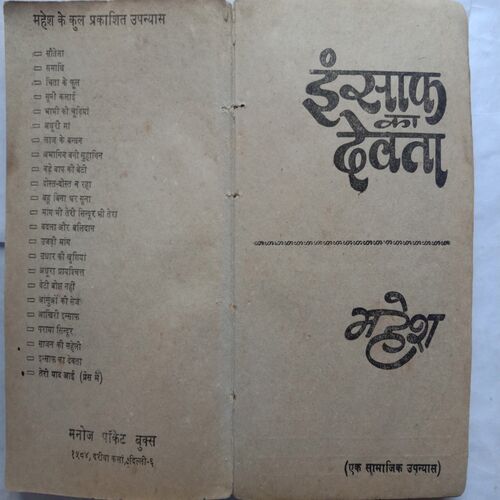 महेश के कुल प्रकाशित उपन्यास
सौतेला
समाधि
चिता के फूल
सूनी कलाई
भाभी की चूड़ियां
अधूरी मां
लाज के बन्धन
अभागिन बनी सुहागिन
बड़े बाप की बेटी
दोस्त-दोस्त न रहा
बहू बिना घर सूना
मांग भी तेरी सिन्दूर भी तेरा
बदला और बलिदान
उजड़ी मांग
उधार की खुशियां
अधूरा प्रायश्चित्त
बेटी बोझ नहीं
आंसुओं की सेज
आखिरी इन्साफ
पराया सिन्दूर
साजन की सहेली
इन्साफ का देवता
तेरी याद आई (प्रेस में)
मनोज पॉकेट बुक्स
१५८४, दरीबा कलां, दिल्ली-६
इंसाफ
का
देवता
महेश
(एक सामाजिक उपन्यास)